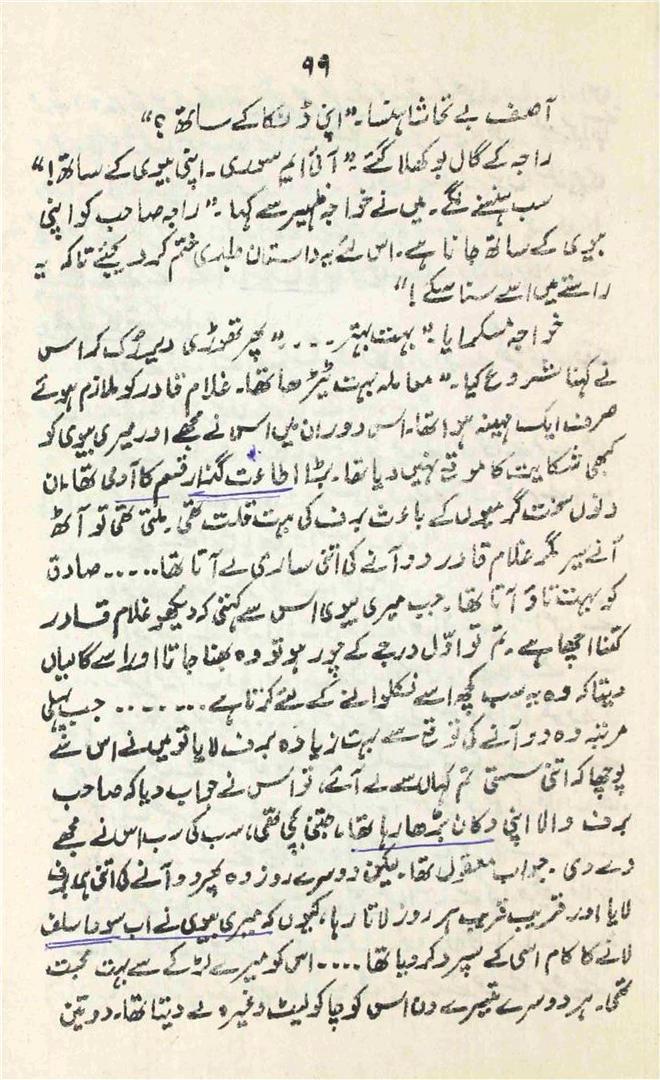 ۹۹
آصف بے تحاشا ہنسا۔ ”اپنی ڈلنکا کے ساتھ؟“
راجہ کے گال بوکھلا گئے۔ ”آئی ایم سوری۔ اپنی بیوی کے ساتھ!“
سب ہنسنے لگے۔ میں نے خواجہ ظہیر سے کہا۔ ”راجہ صاحب کو اپنی
بیوی کے ساتھ جانا ہے۔ اس لئے یہ داستان جلدی ختم کر دیجئے تاکہ یہ
راستے میں اسے سنا سکے!“
خواجہ مسکرایا۔ ”بہت بہتر....“ پھر تھوڑی دیر رک کر اس
نے کہنا شروع کیا۔ ”معاملہ بہت ٹیڑھا تھا۔ غلام قادر کو ملازم ہوئے
صرف ایک مہینہ ہوا تھا۔ اس دوران میں اس نے مجھے اور میری بیوی کو
کبھی شکایت کا موقع نہیں دیا تھا۔ بڑا اطاعت گذار قسم کا آدمی تھا۔ ان
دنوں سخت گرمیوں کے باعث برف کی بہت قلت تھی۔ ملتی تھی تو آٹھ
آنے سیر مگر غلام قادر دو آنے کی اتنی ساری لے آتا تھا..... صادق
کو بہت تاؤ آتا تھا۔ جب میری بیوی اس سے کہتی کہ دیکھو غلام قادر
کتنا اچھا ہے۔ تم تو اوّل درجے کے چور ہو تو وہ بھنا جاتا اور اسے گالیاں
دیتا کہ وہ یہ سب کچھ اسے نکلوانے کے لئے کرتا ہے....... جب پہلی
مرتبہ وہ دو آنے کی توقع سے بہت زیادہ برف لایا تو میں نے اس سے
پوچھا کہ اتنی سستی تم کہاں سے لے آئے، تو اُس نے جواب دیا کہ صاحب
برف والا اپنی دکان بڑھا رہا تھا، جتنی بچی تھی، سب کی سب اس نے مجھے
دے دی۔ جواب معقول تھا۔ لیکن دوسرے روز وہ پھر دو آنے کی اتنی ہی برف
لایا اور قریب قریب ہر روز لاتا رہا، کیوں کہ میری بیوی نے اب سودا سلف
لانے کا کام اسی کے سپرد کر دیا تھا.... اس کو میرے لڑکے سے بہت محبت
تھی۔ ہر دوسرے تیسرے دن اس کو چاکولیٹ وغیرہ لے دیتا تھا۔ دو تین